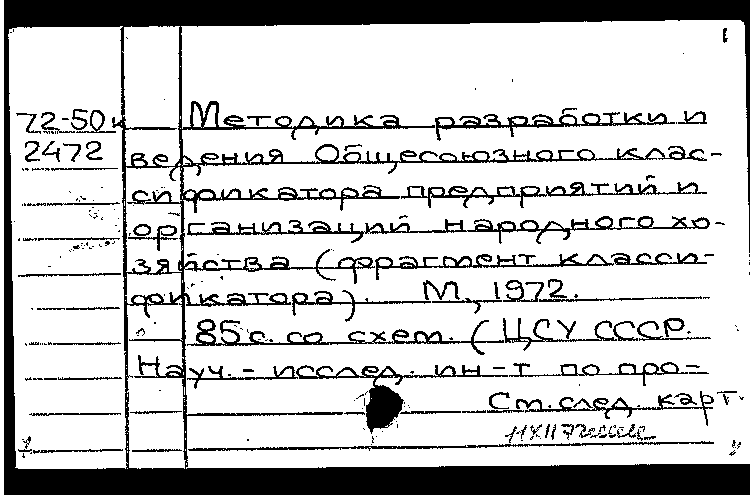 1
72-50к Методика разработки и
2472 ведения Общесоюзного клас-
сификатора предприятий и
организаций народного хо-
зяйства (фрагмент класси-
фикатора). М., 1972.
85 с. со схем. (ЦСУ СССР.
Науч.- исслед. ин-т по про-
См. след. карт.